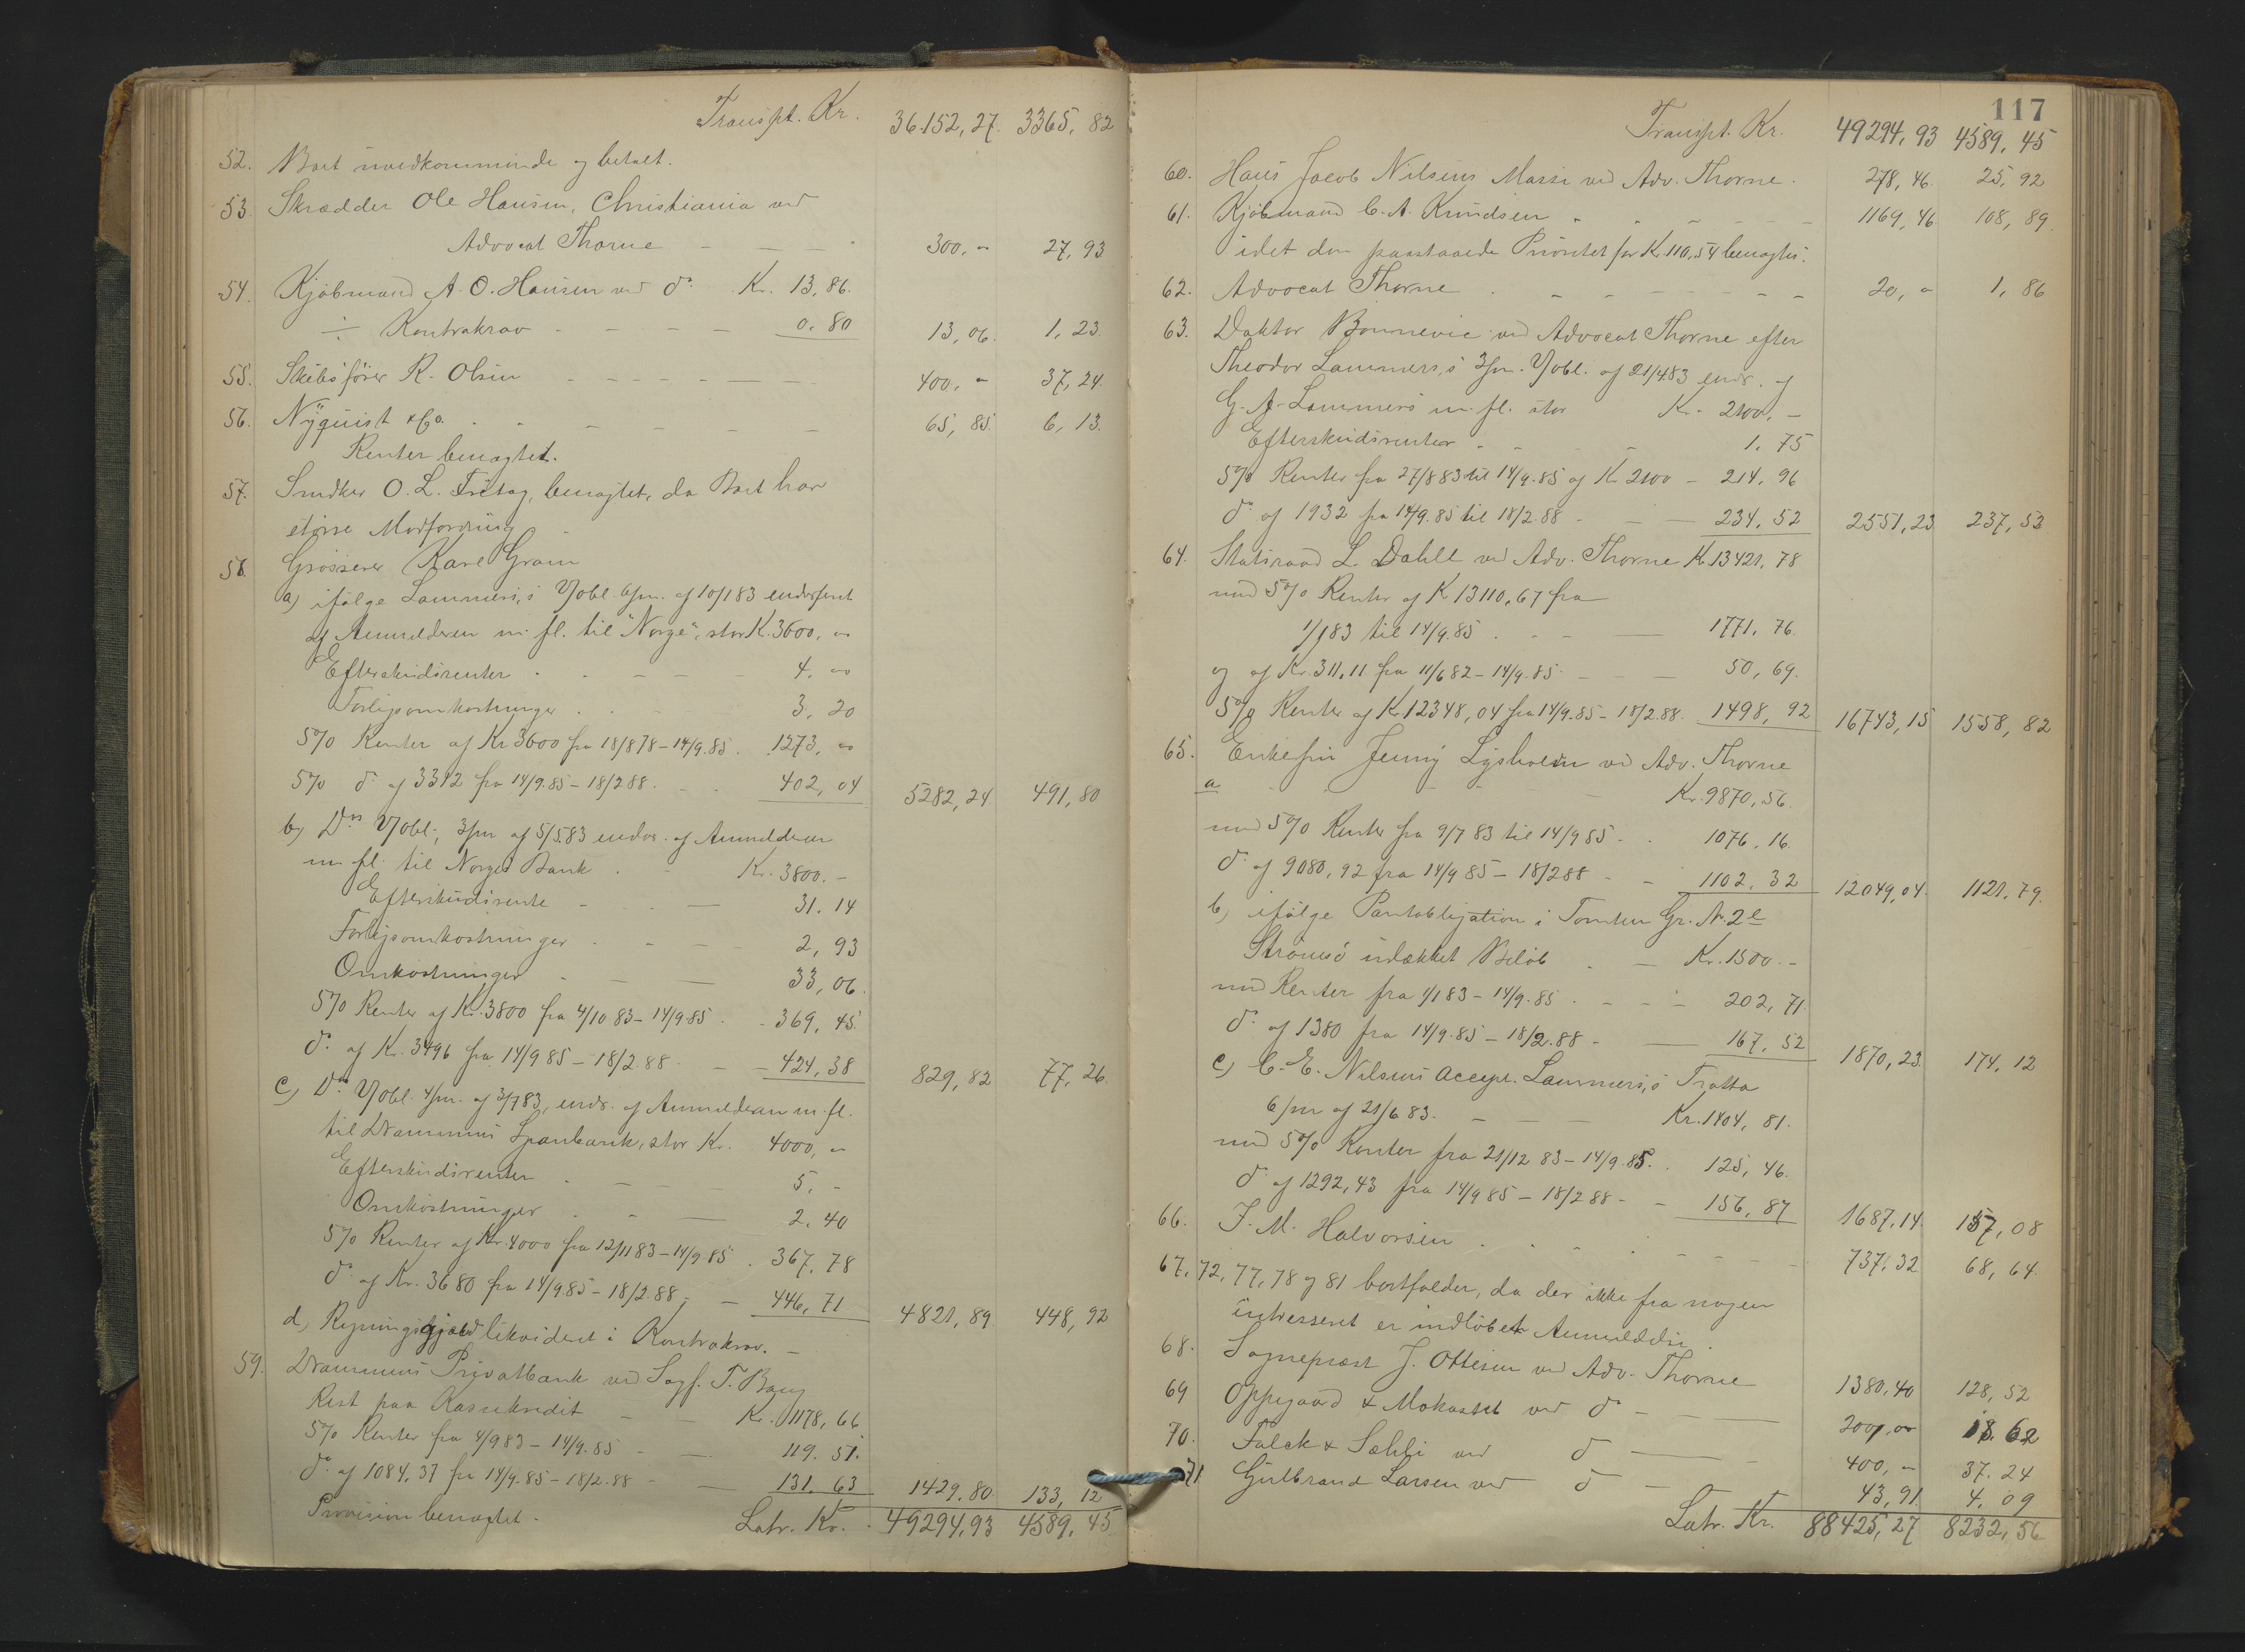 Transpt. Kr. 36.152,27. 3365,82
52. Boet uvedkommende og betalt.
53. Skrædder Ole Hansen, Christiania ved
Advocat Thorne - - - 300,- 27,93
54. Kjøbmand A. O. Hansen ved do. Kr. 13,86.
÷ Kontrakrav - - - - 0.80 13,06. 1,23
55. Skibsfører R. Olsen - - - - 400,- 37,24.
56. Nÿquist & Co. - - - - 65,85. 6,13.
Renter benægtet.
57. Snedker O. L. Fritag, benægtet, da Boet har
større Modfordring
58. Grosserer Karl Gram
a) ifølge Lammers's Vobl. 6/m. af 10/1 83 endosseret
af Anmelderen m. fl. til "Norge", stor K. 3600,-
Efterskudsrenter - - - - 4.-
Forligsomkostninger - - - 3,20
5% Renter af Kr 3600 fra 18/8 78-14/9.85. 1273.-
5% do af 3312 fra 14/9.85-18/2 88. - - 402,04 5282,24 491,80
b) Ds. Vobl., 3/m af 5/5.83 endos. af Anmelderen
m fl. til Norges Bank - - Kr. 3800.-
Efterskudsrente - - - 31.14
Forligsomkostninger - - - 2,93
Omkostninger - - - 33,06.
5% Renter af Kr. 3800 fra 4/10 83-14/9 85 - 369,45.
do. af Kr. 3496 fra 14/9 85-18/2.88 - - 424,38 829,82 77,26.
c) Ds. Vobl. 4/m. af 3/7 83, endos. af Anmelderen m. fl.
til Drammens Sparebank, stor Kr. 4000,-
Efterskudsrenter - - - 5,-
Omkostninger - - - 2.40
5% Renter af Kr. 4000 fra 12/11 83-14/9 85 . 367,78
do af Kr. 3680 fra 14/9 85-18/2.88, - 446,71 4821,89 448,92
d) Regningsgjæld likvideret i Kontrakrav. -
59. Drammens Privatbank ved Sagf. T. Bang
Rest paa Kassekredit - - Kr. 1178,66
5% Renter fra 4/9 83-14/9.85 - - 119.51.
do. af 1084,37 fra 14/9.85-18/2.88 - - 131.63 1429.80 133,12
Provision benægtet. Latr. Kr. 49294,93 4589,45
117
Transpt. Kr. 49294,93 4589,45
60. Hans Jacob Nilsens Masse ved Adv. Thorne. 278,46. 25,92
61. Kjøbmand C. A. Knudsen - - - - 1169,46 108,89.
idet den paastaaede Prioritet for Kr. 110,54 benægtes.
62. Advocat Thorne - - - - - 20,- 1,86
63. Doktor Bonnevie ved Advocat Thorne efter
Theodor Lammers's 3/m. Vobl. af 21/4 83 endos. af
G. A. Lammers m. fl. stor Kr. 2100,-
Efterskudsrenter - - - 1.75
5% Renter fra 27/8 83 til 14/9.85 af Kr 2100 - 214,96
do af 1932 fra 14/9.85 til 18/2.88 - - 234,52 2551,23 237,53
64. Statsraad L. Dahll ved Adv. Thorne Kr. 13421,78
med 5% Renter af K 13110,67 fra
1/1 83 til 14/9.85 - - - 1771,76.
og af Kr. 311,11 fra 11/6 82-14/9.85 - - 50,69.
5% Renter af Kr 12348,04 fra 14/9.85-18/2.88. 1498,92 16743,15 1558,82
65. Enkefru Jenny Lysholm ved Adv. Thorne
a - - - - - Kr. 9870,56.
med 5% Renter fra 9/7 83 til 14/9 85 - - 1076,16.
do. af 9080,92 fra 14/9 85-18/2 88 - - 1102,32 12049,04. 1121,79.
b) ifølge Pantobligation i Tomten Gr. Nr. 2e
Strømsø udækket Beløb - - Kr. 1500.-
med Renter fra 1/1 83-14/9.85 - - - 202,71
do. af 1380 fra 14/9.85-18/2.88 - - 167,52 1870,23. 174,12
c) C. E. Nilsens accept. Lammers's Tratta
6/m af 21/6 83. - - - Kr. 1404,81.
med 5% Renter fra 21/12 83-14/9.85. 125,46.
do af 1292,43 fra 14/9 85-18/2 88 - - 156,87 1687,14. 157,08
66. J. M. Halvorsen - - - - - 737,32 68,64.
67, 72, 77, 78 og 81 bortfalder, da der ikke fra nogen
interesseret er indløbet Anmeldelse.
68. Sognepræst J. Ottesen ved Adv. Thorne 1380,40 128,52
69 Oppegaard & Mokastet ved do - - 200,00 18.62
70. Falck & Sæhli ved do - - 400,- 37.24
71 Gulbrand Larsen ved do - - 43,91. 4.09
Latr. Kr. 88425,27 8232,56